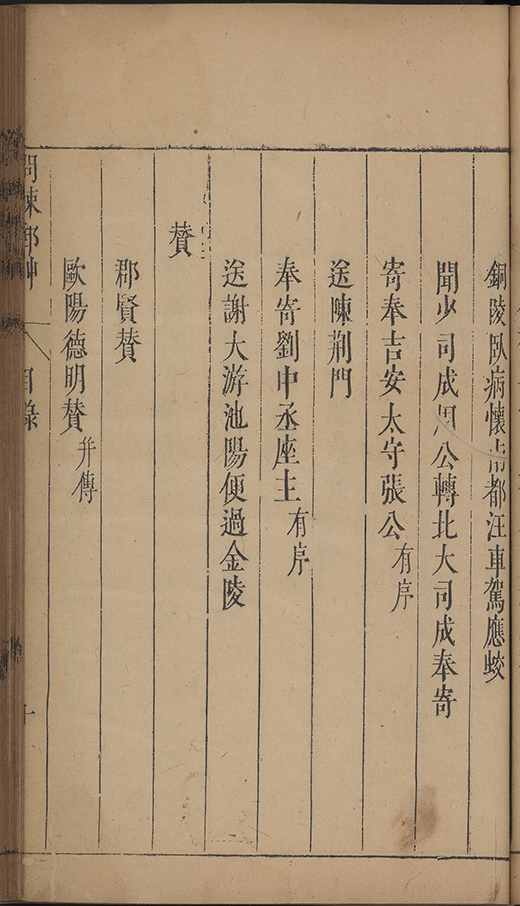 銅陵臥病懷南都汪車駕應蛟
聞少司成周公轉北大司成奉寄
寄奉吉安太守張公有序
送陳荊門
奉寄劉中丞座主有序
送謝大游池陽便過金陵
贊
郡賢贊
歐陽德明贊并傳
目錄
十